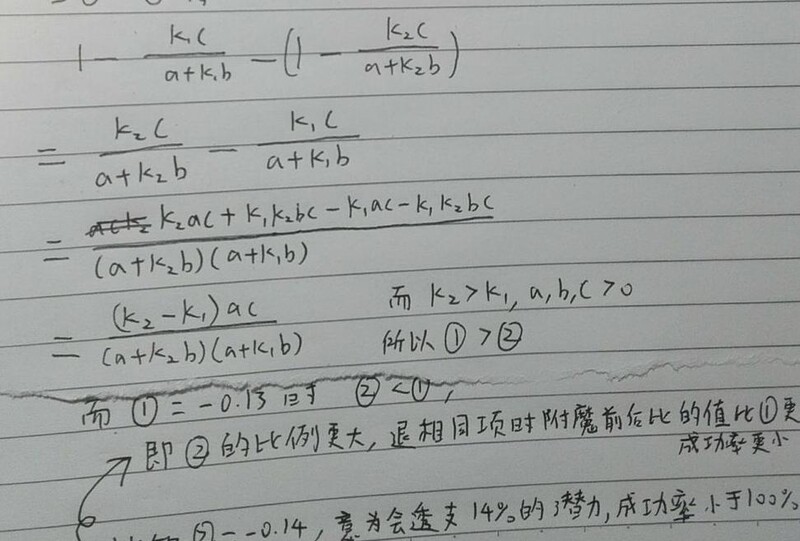 1 - k₁c/(a+k₁b) - (1 - k₂c/(a+k₂b))
= k₂c/(a+k₂b) - k₁c/(a+k₁b)
= (k₂ac + k₁k₂bc - k₁ac - k₁k₂bc)/((a+k₂b)(a+k₁b))
= (k₂-k₁)ac/((a+k₂b)(a+k₁b)) 而 k₂>k₁, a,b,c>0
所以①>②
而①=-0.13时 ②<①,
即②的比例更大,退相同项时附魔前后比的值比①更
成功率更小
②=-0.14,意为会透支14%的潜力,成功率小于100%